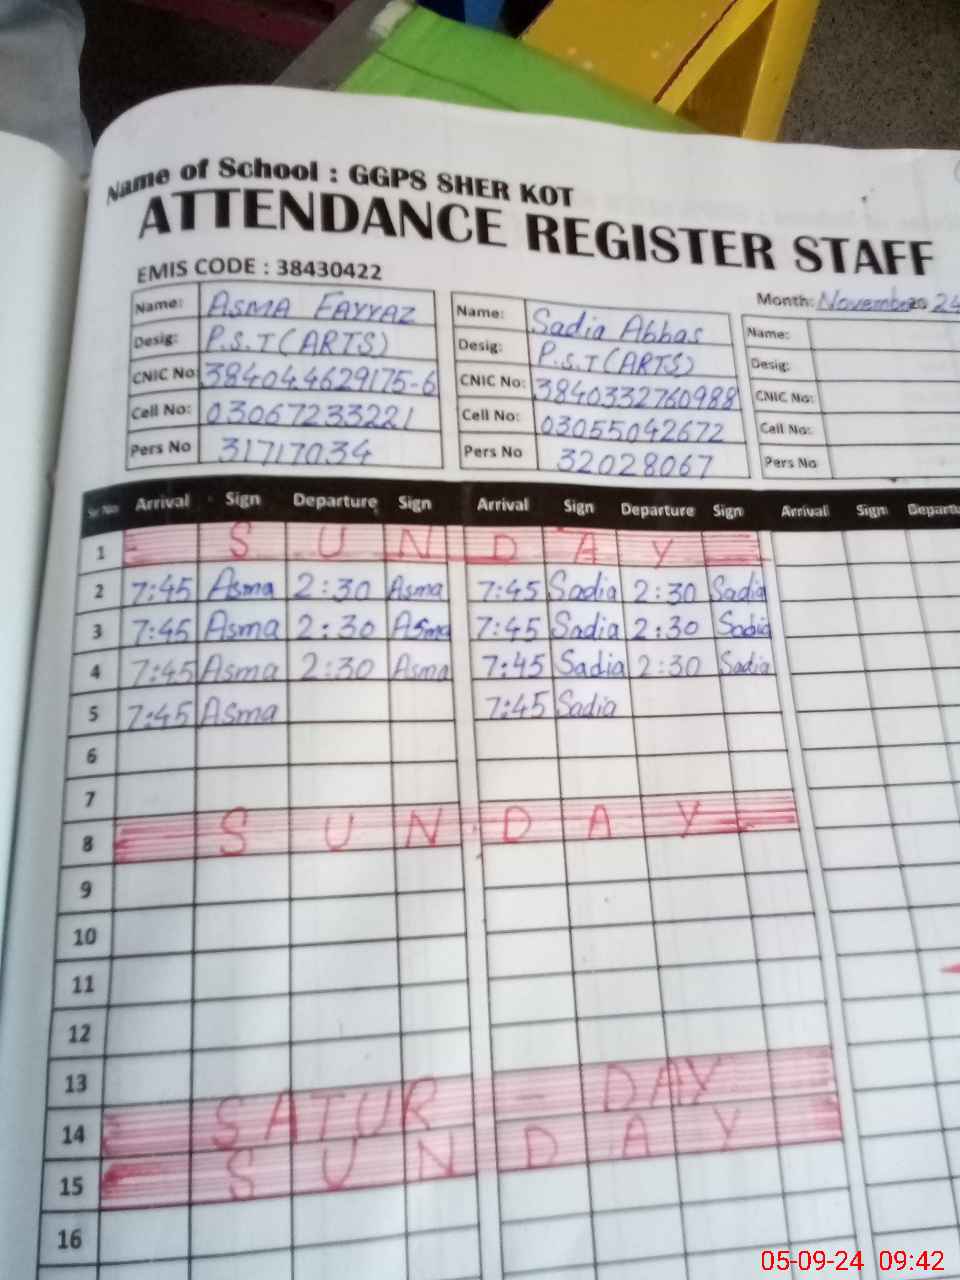 Name of School : GGPS SHER KOT
ATTENDANCE REGISTER STAFF
EMIS CODE : 38430422
Month: November 2024
Name: ASMA FAYYAZ Name: Sadia Abbas Name:
Desig: P.S.T (ARTS) Desig: P.S.T (ARTS) Desig:
CNIC No: 384044629175-6 CNIC No: 3840332760988 CNIC No:
Cell No: 03067233221 Cell No: 03055042672 Cell No:
Pers No 31717034 Pers No 32028067 Pers No
Arrival Sign Departure Sign Arrival Sign Departure Sign Arrival Sign Departu
1 SUNDAY
2 7:45 Asma 2:30 Asma 7:45 Sadia 2:30 Sadia
3 7:45 Asma 2:30 Asma 7:45 Sadia 2:30 Sadia
4 7:45 Asma 2:30 Asma 7:45 Sadia 2:30 Sadia
5 7:45 Asma 7:45 Sadia
6
7
8 SUNDAY
9
10
11
12
13
14 SATUR-DAY
15 SUNDAY
16
05-09-24 09:42